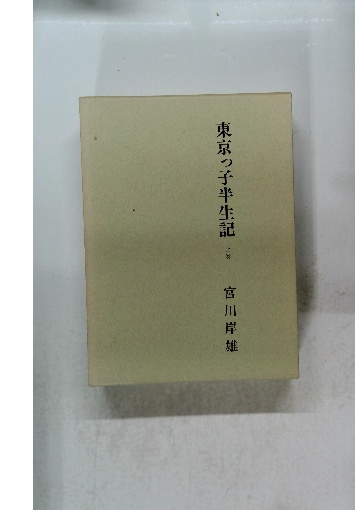 東京っ子半生記
宮川岸雄